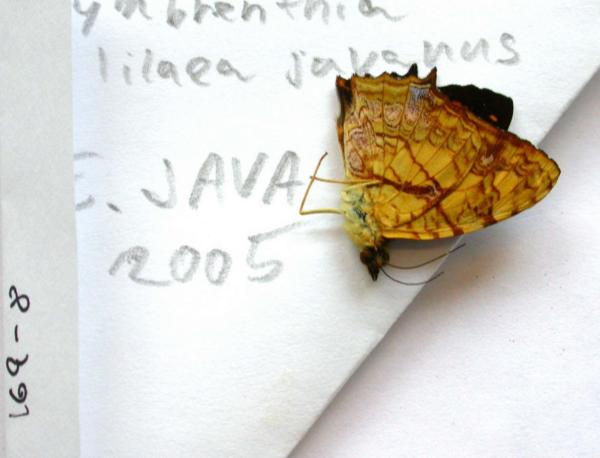 ymbrenthia
lilaea javanus
E. JAVA
2005
169-8